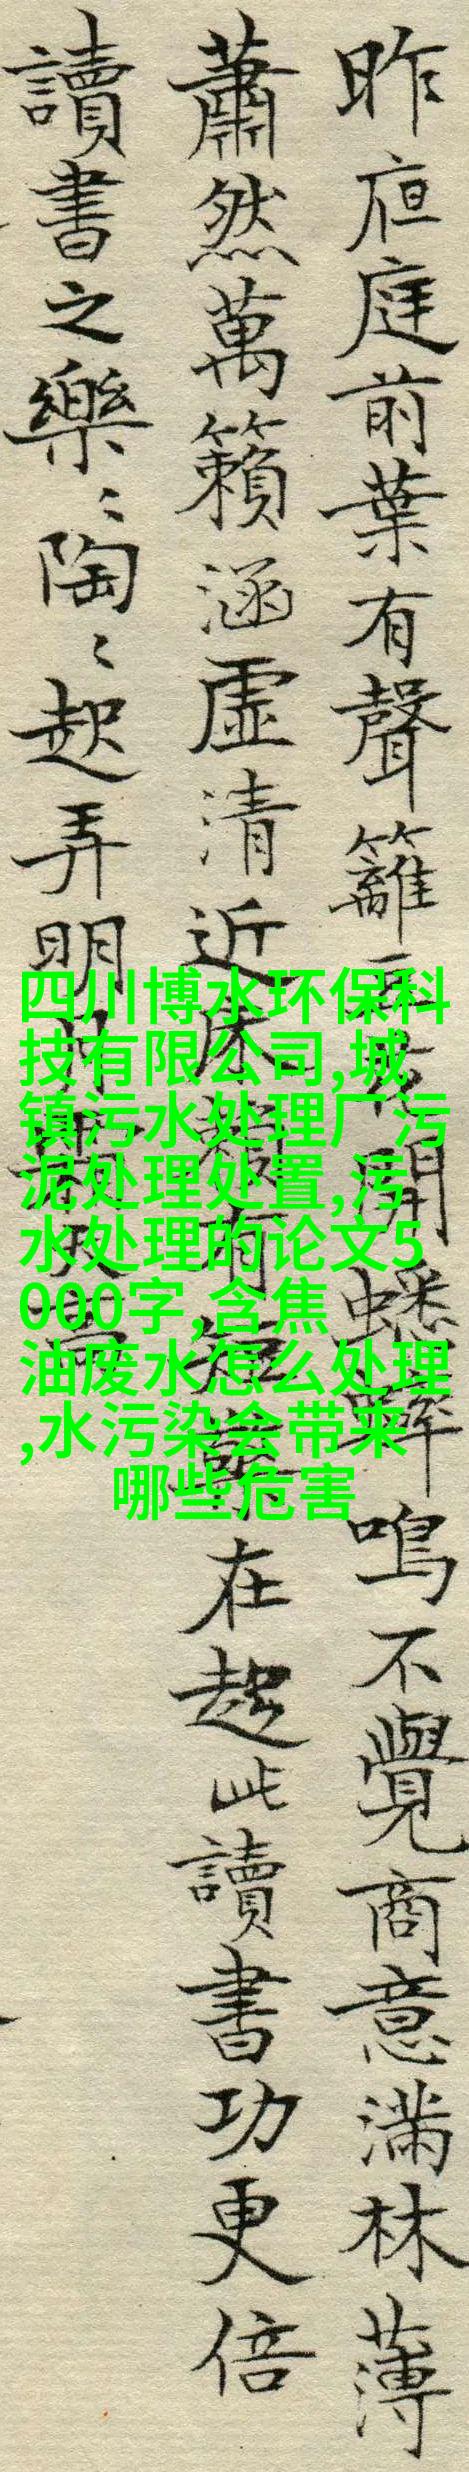 昨亱庭前葉有聲籬豆花開蟋蟀鳴不覺商意滿林薄
蕭然萬籟涵虛清近床賴有短檠在趂此讀書功更倍
讀書之樂〻陶〻起弄明月霜天高
四川博水环保科
技有限公司,城
镇污水处理厂污
泥处理处置,污
水处理的论文5
000字,含焦
油废水怎么处理
,水污染会带来
哪些危害